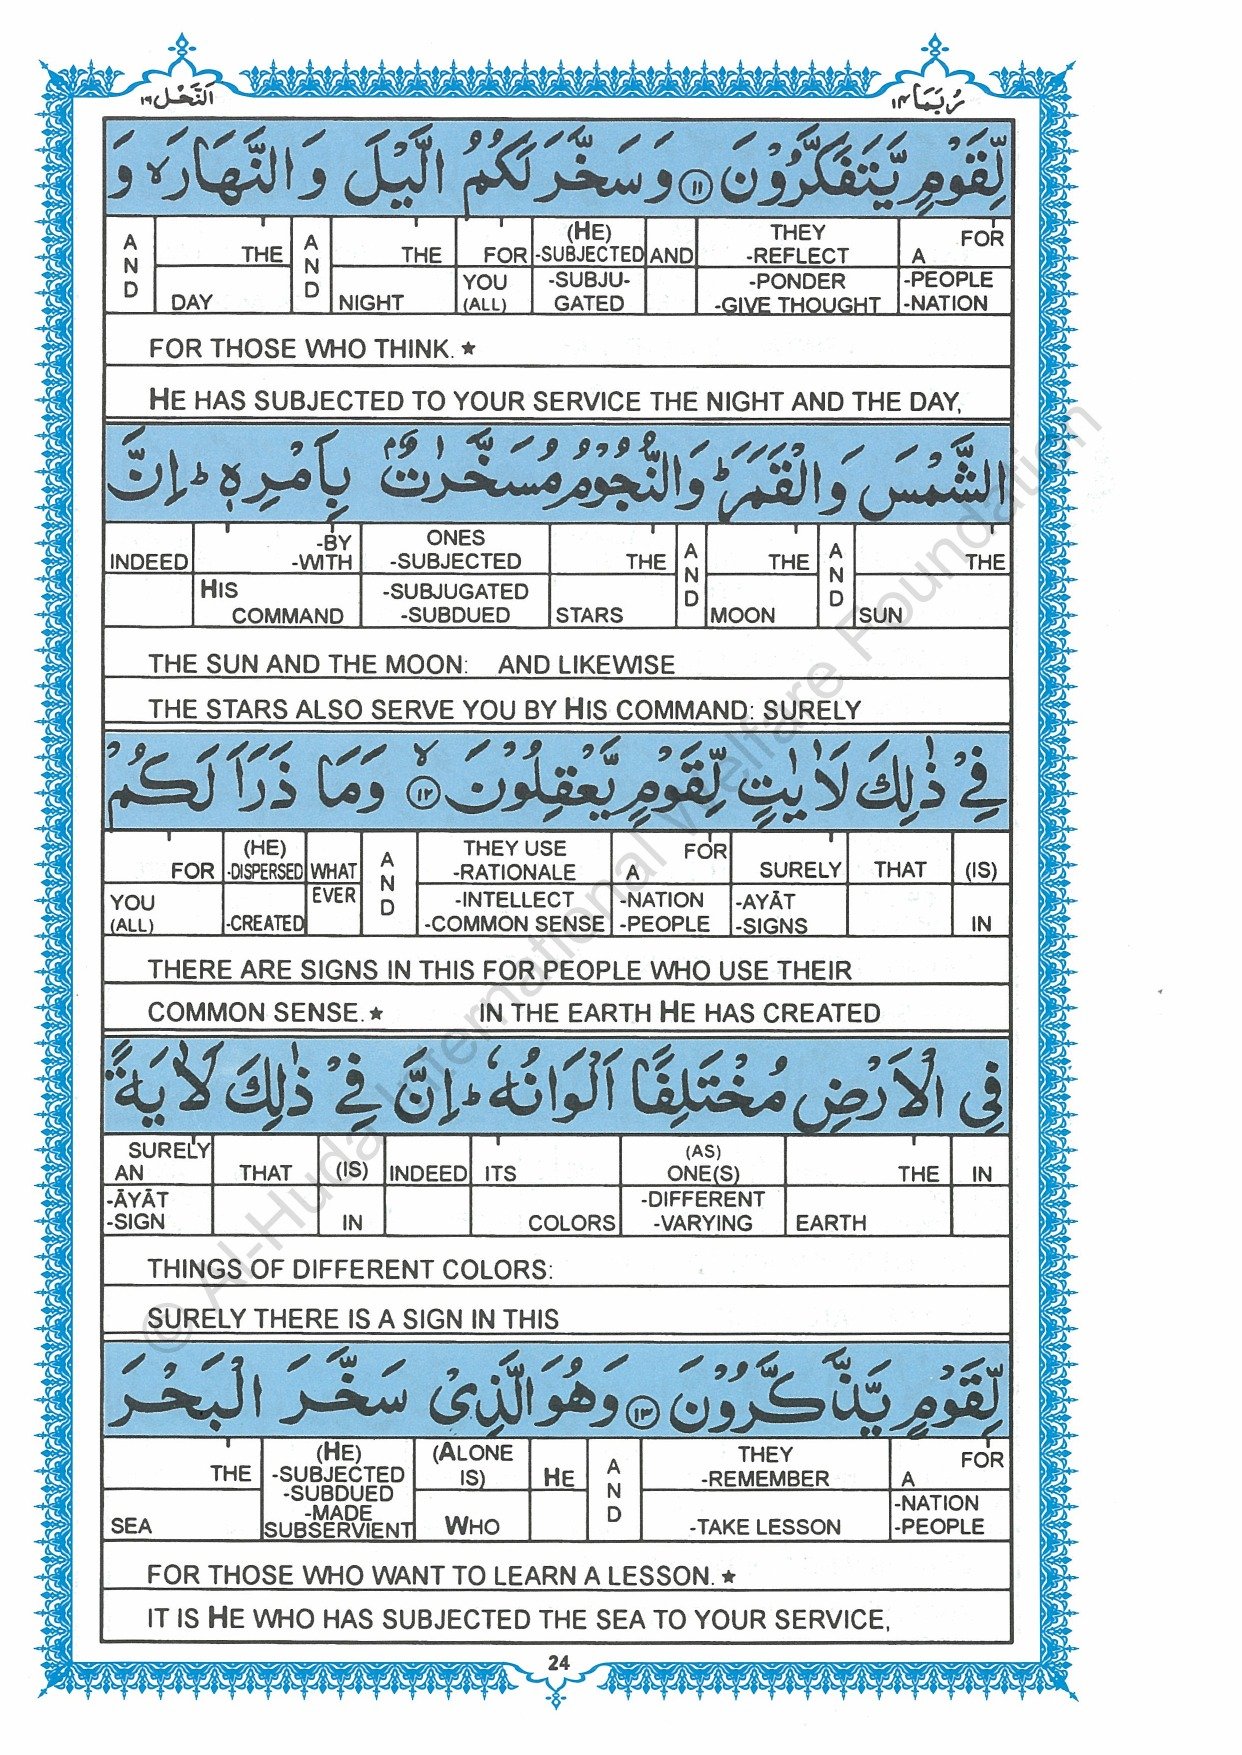 النَّحْل ١٦
رُبَمَا ١٤
لِّقَوْمٍ يَّتَفَكَّرُوْنَ ﴿١١﴾ وَسَخَّرَ لَكُمُ الَّيْلَ وَالنَّهَارَ ۙ وَ
AND THE AND THE FOR (HE) -SUBJECTED AND THEY -REFLECT FOR A
DAY NIGHT YOU (ALL) -SUBJU- GATED -PONDER -GIVE THOUGHT -PEOPLE -NATION
FOR THOSE WHO THINK. ★
HE HAS SUBJECTED TO YOUR SERVICE THE NIGHT AND THE DAY,
الشَّمْسَ وَالْقَمَرَ ؕ وَالنُّجُوْمُ مُسَخَّرٰتٌۢ بِاَمْرِهٖ ؕ اِنَّ
INDEED -BY -WITH ONES -SUBJECTED THE AND THE AND THE
HIS COMMAND -SUBJUGATED -SUBDUED STARS MOON SUN
THE SUN AND THE MOON: AND LIKEWISE
THE STARS ALSO SERVE YOU BY HIS COMMAND: SURELY
فِيْ ذٰلِكَ لَاٰيٰتٍ لِّقَوْمٍ يَّعْقِلُوْنَ ﴿١٢﴾ ۙ وَمَا ذَرَاَ لَكُمْ
FOR (HE) -DISPERSED WHAT AND THEY USE -RATIONALE FOR A SURELY THAT (IS)
YOU (ALL) -CREATED EVER -INTELLECT -COMMON SENSE -NATION -PEOPLE -AYĀT -SIGNS IN
THERE ARE SIGNS IN THIS FOR PEOPLE WHO USE THEIR
COMMON SENSE. ★ IN THE EARTH HE HAS CREATED
فِى الْاَرْضِ مُخْتَلِفًا اَلْوَانُهٗ ؕ اِنَّ فِيْ ذٰلِكَ لَاٰيَةً
SURELY AN THAT (IS) INDEED ITS (AS) ONE(S) THE IN
-ĀYĀT -SIGN IN COLORS -DIFFERENT -VARYING EARTH
THINGS OF DIFFERENT COLORS:
SURELY THERE IS A SIGN IN THIS
لِّقَوْمٍ يَّذَّكَّرُوْنَ ﴿١٣﴾ وَهُوَ الَّذِيْ سَخَّرَ الْبَحْرَ
THE (HE) -SUBJECTED -SUBDUED (ALONE IS) HE AND THEY -REMEMBER FOR A
SEA -MADE SUBSERVIENT WHO -TAKE LESSON -NATION -PEOPLE
FOR THOSE WHO WANT TO LEARN A LESSON. ★
IT IS HE WHO HAS SUBJECTED THE SEA TO YOUR SERVICE,
24
© Al-Huda International Welfare Foundation